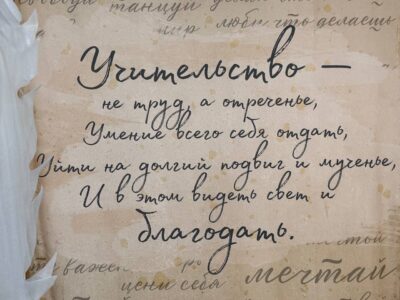 танцуй
мир люби что делаешь
Учительство —
не труд, а отреченье,
Умение всего себя отдать,
Уйти на долгий подвиг и мученье,
И в этом видеть свет и
благодать.
цени себя мечтай